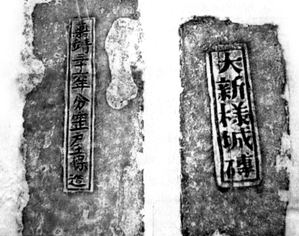 嘉靖年分造
大新様城磚